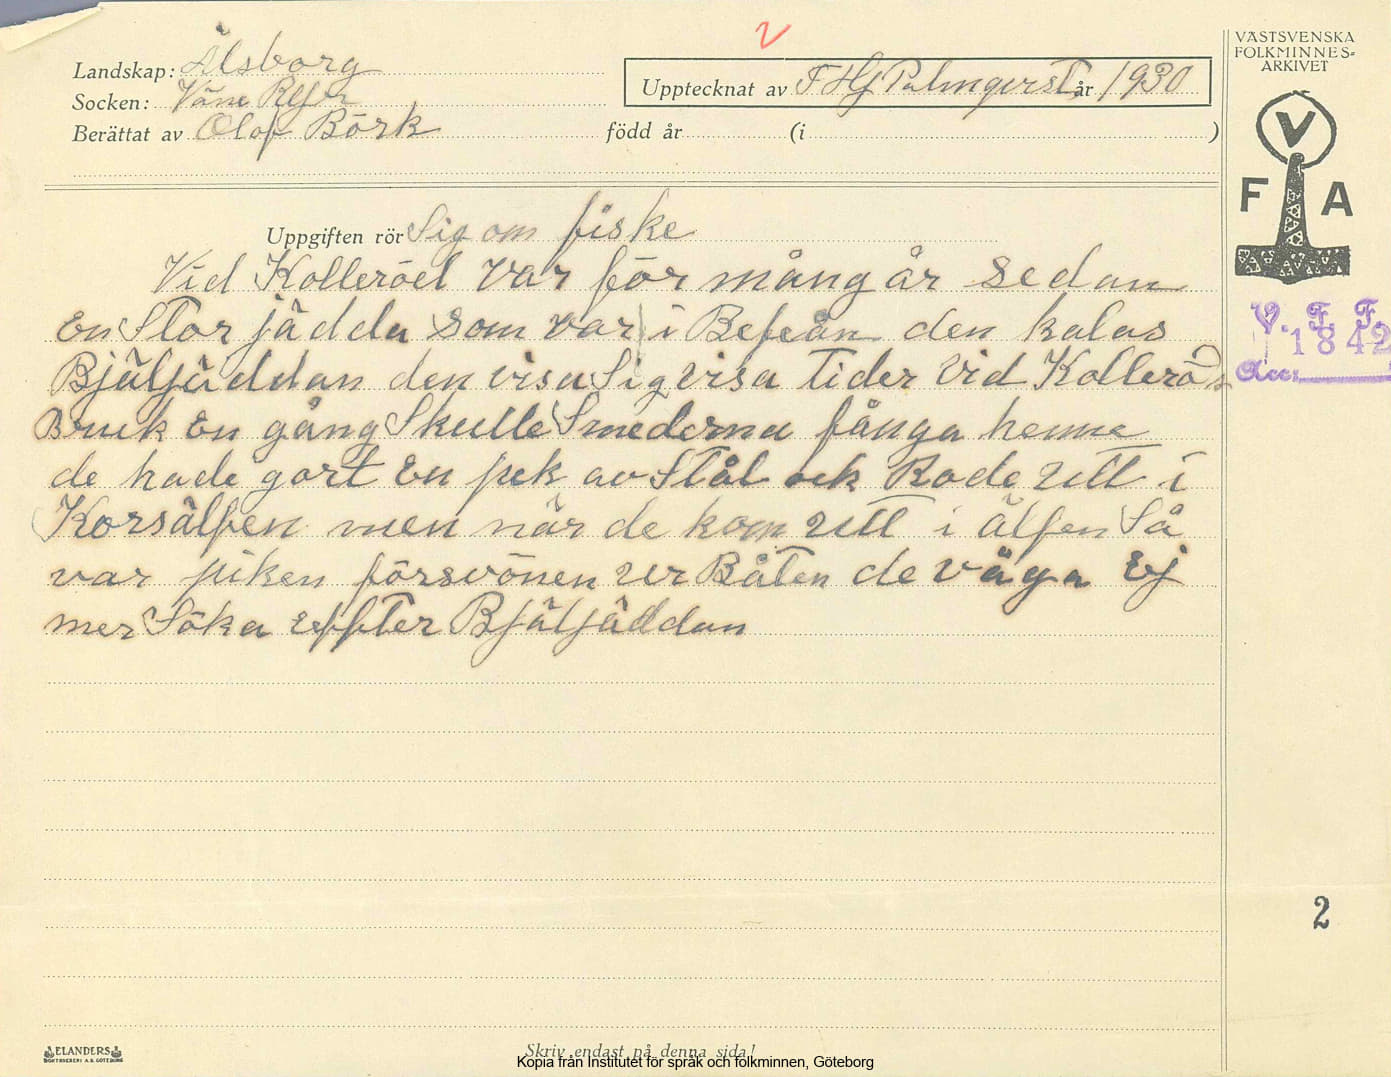 2
VÄSTSVENSKA
FOLKMINNES-
ARKIVET
Landskap: Älsborg
Socken: Väne
Upptecknat av F Hj Palmqvist år 1930
Berättat av Olof Börk född år (i )
V
F A
Uppgiften rör Sig om fiske
Vid Kolleröel var för mång år sedan
En Stor jädda som var i Befeån den kalas
Bjäljäddan den visa Sig visa tider vid Kollerö
Bruk En gång Skulle Smederna fånga henne
de hade gort En pek av Stål ock Rode utt i
Korsälfen men när de kom utt i älfen Så
var piken försvönen ur Båten de våga Ej
mer Söka effter Bjäljäddan
V. F. F.
1842
Acc.
2
ELANDERS
BOKTRYCKERI A.B. GÖTEBORG
Skriv endast på denna sida!
Kopia från Institutet för språk och folkminnen, Göteborg